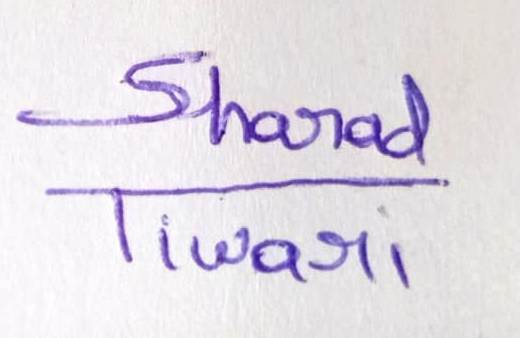 Sharad
Tiwari